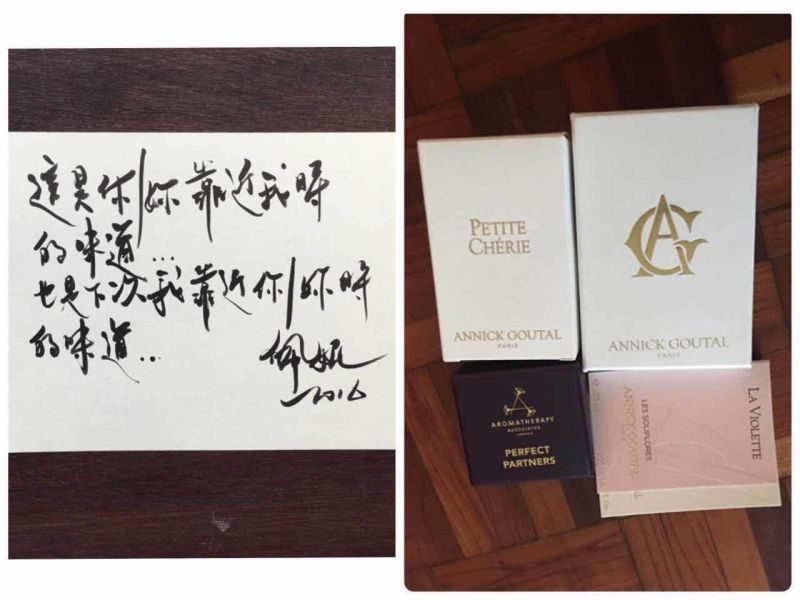 這是你/妳靠近我時
的味道...
也是下次我靠近你/妳時
的味道...
佩妮
2016
PETITE
CHÉRIE
ANNICK GOUTAL
PARIS
AG
ANNICK GOUTAL
PARIS
AROMATHERAPY
ASSOCIATES
LONDON
PERFECT
PARTNERS
LA VIOLETTE
LES SOLIFLORES
ANNICK GOUTAL